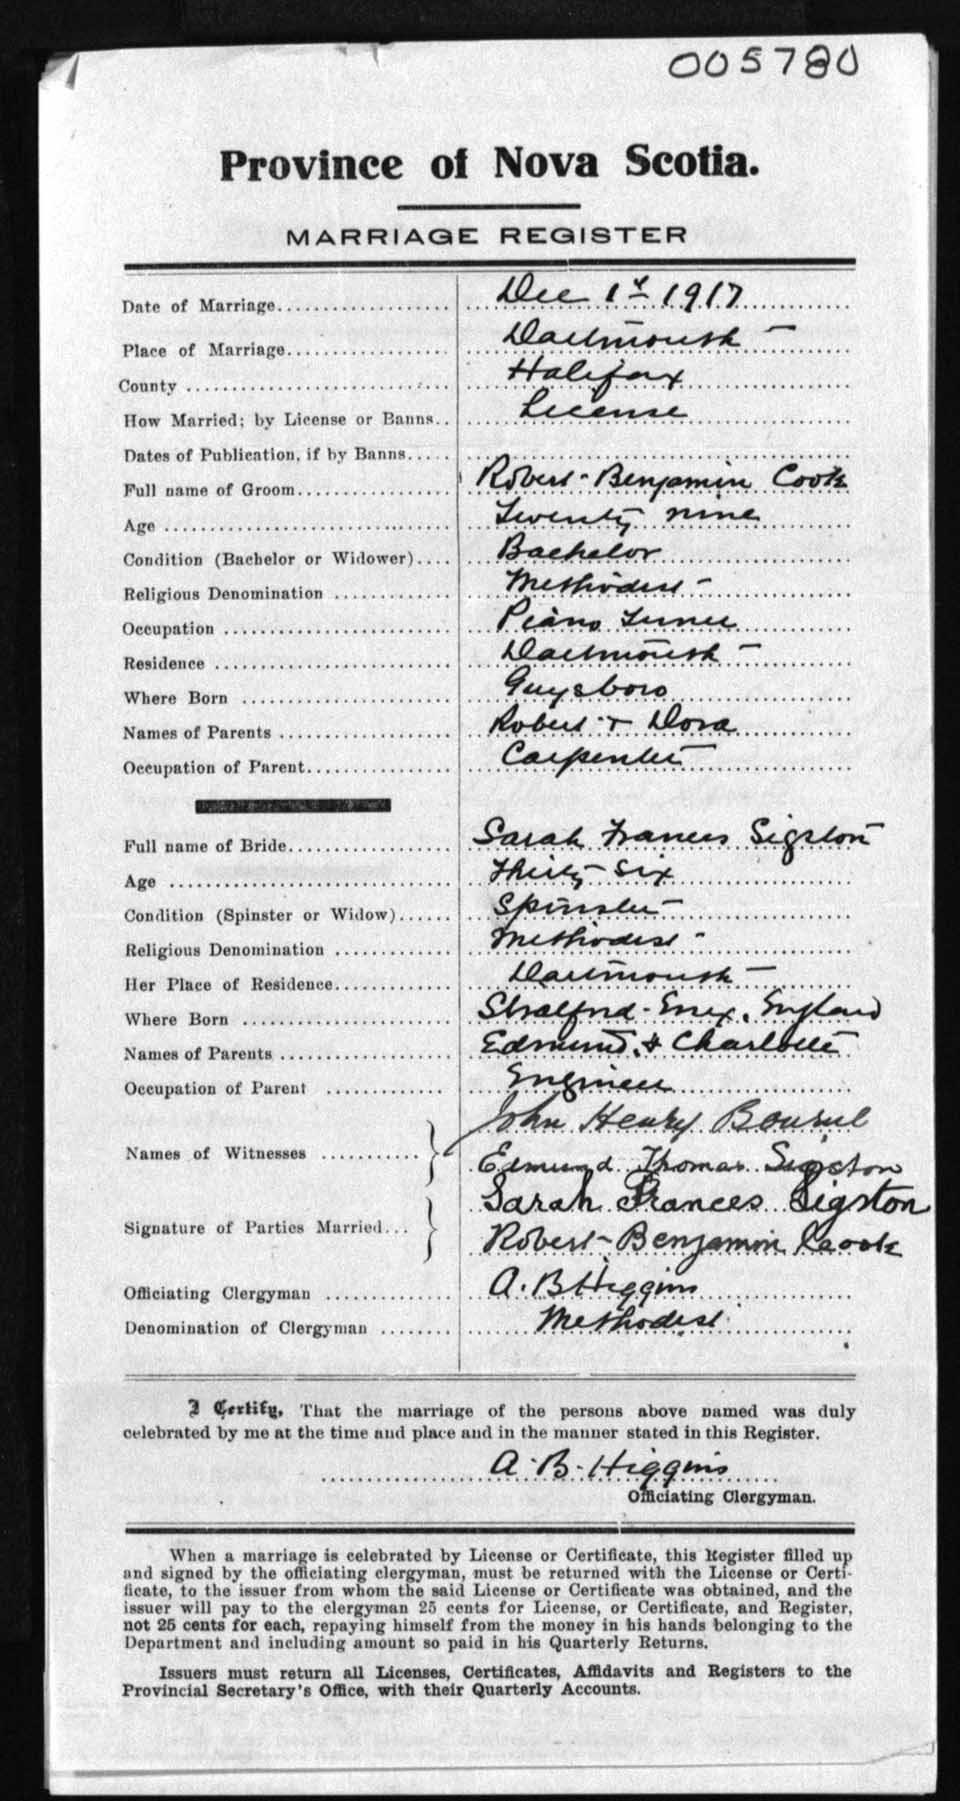 005780
Province of Nova Scotia.
MARRIAGE REGISTER
Date of Marriage.................... Dec 1st 1917
Place of Marriage.................. Dartmouth
County ............................ Halifax
How Married; by License or Banns.. License
Dates of Publication, if by Banns.....
Full name of Groom................. Robert Benjamin Cook
Age ............................... Twenty nine
Condition (Bachelor or Widower).... Bachelor
Religious Denomination ............. Methodist
Occupation ......................... Piano Tuner
Residence .......................... Dartmouth
Where Born ......................... Guysboro
Names of Parents ................... Robert & Dora
Occupation of Parent................ Carpenter
Full name of Bride.................. Sarah Frances Sigston
Age ................................ Thirty Six
Condition (Spinster or Widow)...... Spinster
Religious Denomination ............. Methodist
Her Place of Residence............. Dartmouth
Where Born ......................... Stratford Essex, England
Names of Parents ................... Edmund & Charlotte
Occupation of Parent ............... Engineer
John Henry
Names of Witnesses ...........
Edmund Thomas Sigston
Sarah Frances Sigston
Signature of Parties Married...
Robert Benjamin Cook
Officiating Clergyman ............. A. B Higgins
Denomination of Clergyman ........ Methodist
I Certify, That the marriage of the persons above named was duly
celebrated by me at the time and place and in the manner stated in this Register.
A. B. Higgins
Officiating Clergyman.
When a marriage is celebrated by License or Certificate, this Register filled up
and signed by the officiating clergyman, must be returned with the License or Certi-
ficate, to the issuer from whom the said License or Certificate was obtained, and the
issuer will pay to the clergyman 25 cents for License, or Certificate, and Register,
not 25 cents for each, repaying himself from the money in his hands belonging to the
Department and including amount so paid in his Quarterly Returns.
Issuers must return all Licenses, Certificates, Affidavits and Registers to the
Provincial Secretary's Office, with their Quarterly Accounts.